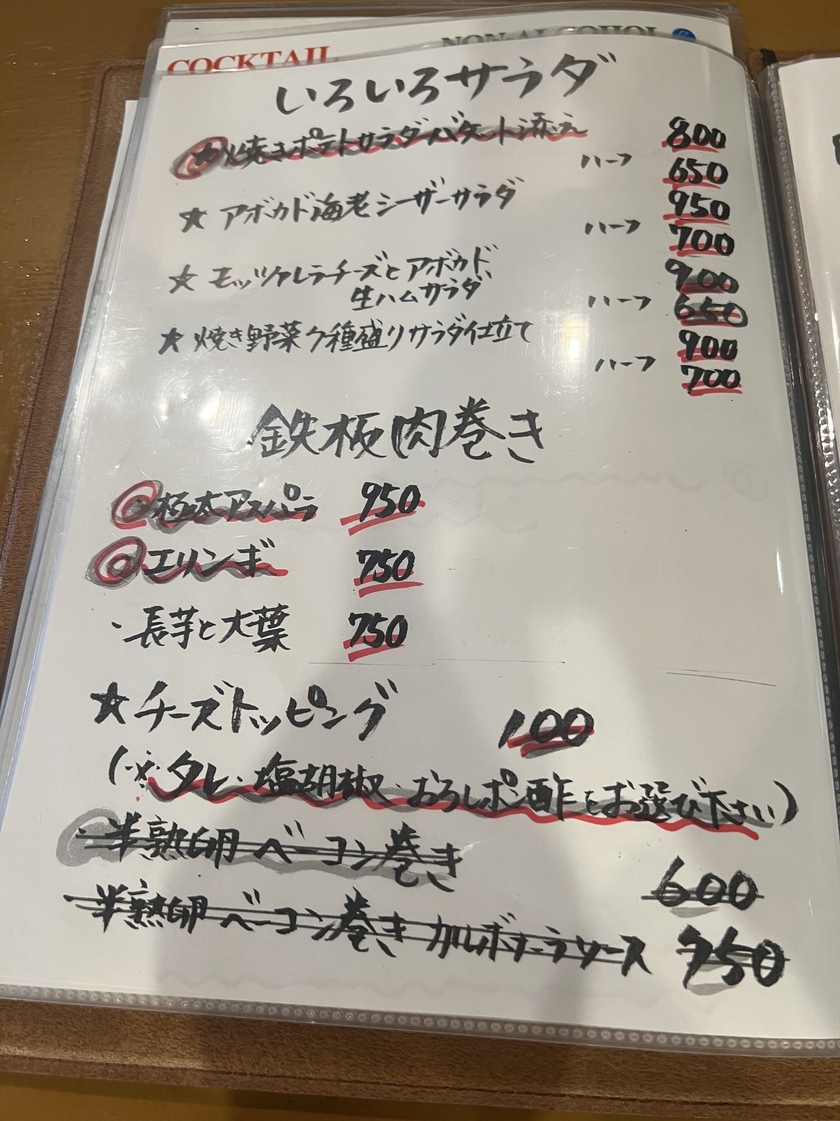 COCKTAIL NON ALCOHOL
いろいろサラダ
★焼きポテトサラダバケット添え 800
ハーフ 650
★ アボカド海老シーザーサラダ 950
ハーフ 700
★ モッツァレラチーズとアボカド、 900
生ハムサラダ ハーフ 650
★ 焼き野菜7種盛りサラダ仕立て 900
ハーフ 700
鉄板肉巻き
極太アスパラ 950
エリンギ 750
・長芋と大葉 750
★チーズトッピング 100
(※タレ・塩胡椒・おろしポン酢をお選び下さい)
・半熟卵ベーコン巻き 600
・半熟卵ベーコン巻きカルボナーラソース 750